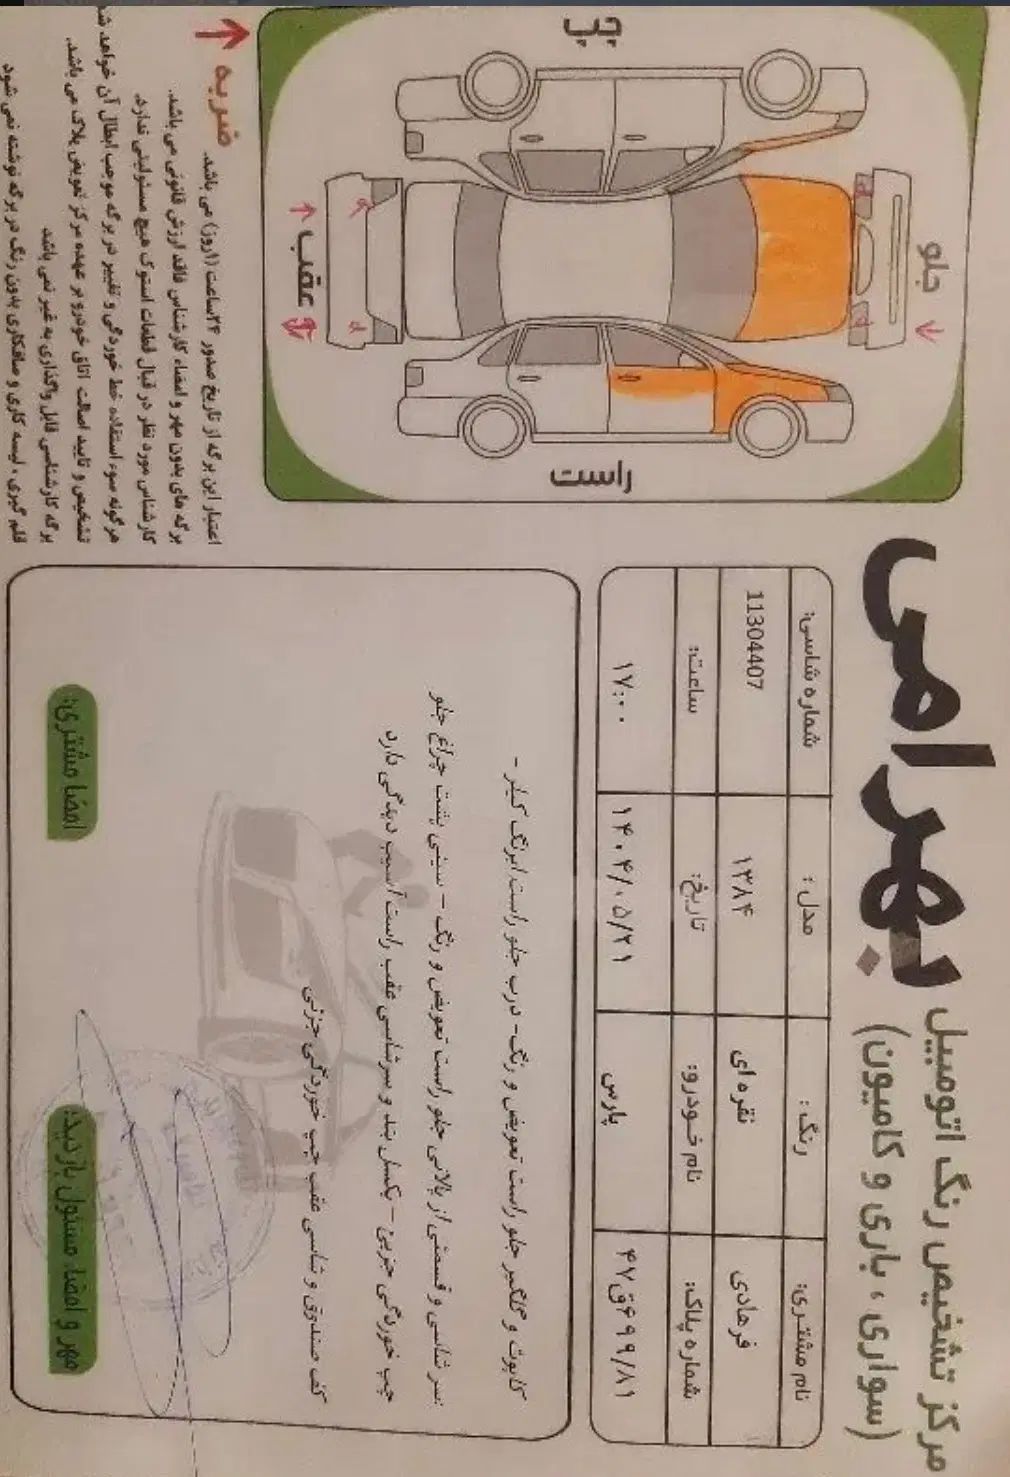 بهرامی
مرکز تشخیص رنگ اتومبیل
(سواری ، باری و کامیون)
نام مشتری: رنگ: مدل: شماره شاسی:
فرهادی نقره ای ۱۳۸۴ 11304407
شماره پلاک: نام خودرو: تاریخ: ساعت:
۴۷ق۶۹۹/۸۱ پارس ۱۴۰۴/۰۵/۲۱ ۱۷:۰۰
کاپوت و گلگیر جلو راست تعویض و رنگ - درب جلو راست ابرنگ گیلر -
سر شاسی و قسمتی از بالایی جلو راست تعویض و رنگ - سینی پشت چراغ جلو
چپ خوردگی جزیی - بکسل بند و سرشاسی عقب راست آسیب دیدگی دارد
کف صندوق و شاسی عقب چپ خوردگی جزئی
مهر و امضاء مسئول بازدید:
امضا مشتری:
چپ
جلو
عقب
راست
ضربه
اعتبار این برگه از تاریخ صدور ۲۴ساعت (۱روز) می باشد.
برگه های بدون مهر و امضاء کارشناس فاقد ارزش قانونی می باشد.
کارشناس مورد نظر در قبال قطعات استوک هیچ مسئولیتی ندارد.
هرگونه سوء استفاده خط خوردگی و تغییر در برگه موجب ابطال آن خواهد شد
تشخیص و تایید اصالت اتاق خودرو بر عهده مرکز تعویض پلاک می باشد.
برگه کارشناسی قابل واگذاری به غیر نمی باشد
قلم گیری ، لیسه کاری و صافکاری بدون رنگ در برگه نوشته نمی شود